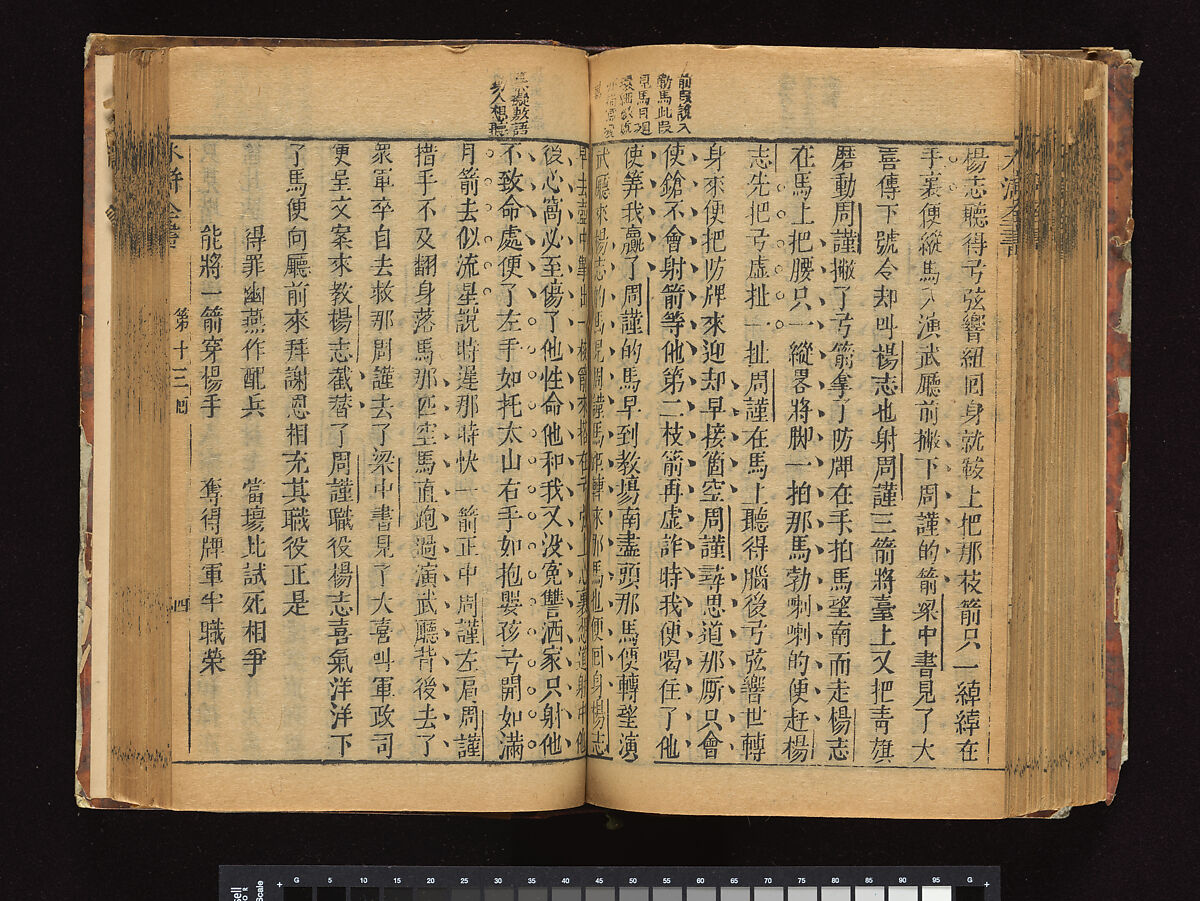 楊志聽得弓弦響紐回身就鞍上把那枝箭只一綽綽在
手裏便縱馬入演武廳前撇下周謹的箭梁中書見了大
喜傳下號令却叫楊志也射周謹三箭將臺上又把靑旗
磨動周謹撇了弓箭拿了防牌在手拍馬望南而走楊志
在馬上把腰只一縱畧將脚一拍那馬勃喇喇的便赶楊
志先把弓虛扯一扯周謹在馬上聽得腦後弓弦響世轉
身來便把防牌來迎却早接箇空周謹尋思道那厮只會
使鎗不會射箭等他第二枝箭再虛詐時我便喝住了他
便筭我贏了周謹的馬早到教塲南盡頭那馬便轉望演
武廳來楊志的馬見周謹馬跑轉來那馬也便回身楊志
早去壺中掣出一枝箭來搭在弓弦上心裏想道射中他
後心窩必至傷了他性命他和我又没寃讐洒家只射他
不致命處便了左手如托太山右手如抱嬰孩弓開如滿
月箭去似流星說時遲那時快一箭正中周謹左肩周謹
措手不及翻身落馬那匹空馬直跑過演武廳背後去了
衆軍卒自去救那周謹去了梁中書見了大喜叫軍政司
便呈文案來教楊志截替了周謹職役楊志喜氣洋洋下
了馬便向廳前來拜謝恩相充其職役正是
得罪幽燕作配兵 當塲比試死相爭
能將一箭穿楊手 奪得牌軍半職榮
水滸全書 第十三回 四
前段說入
勒馬此段